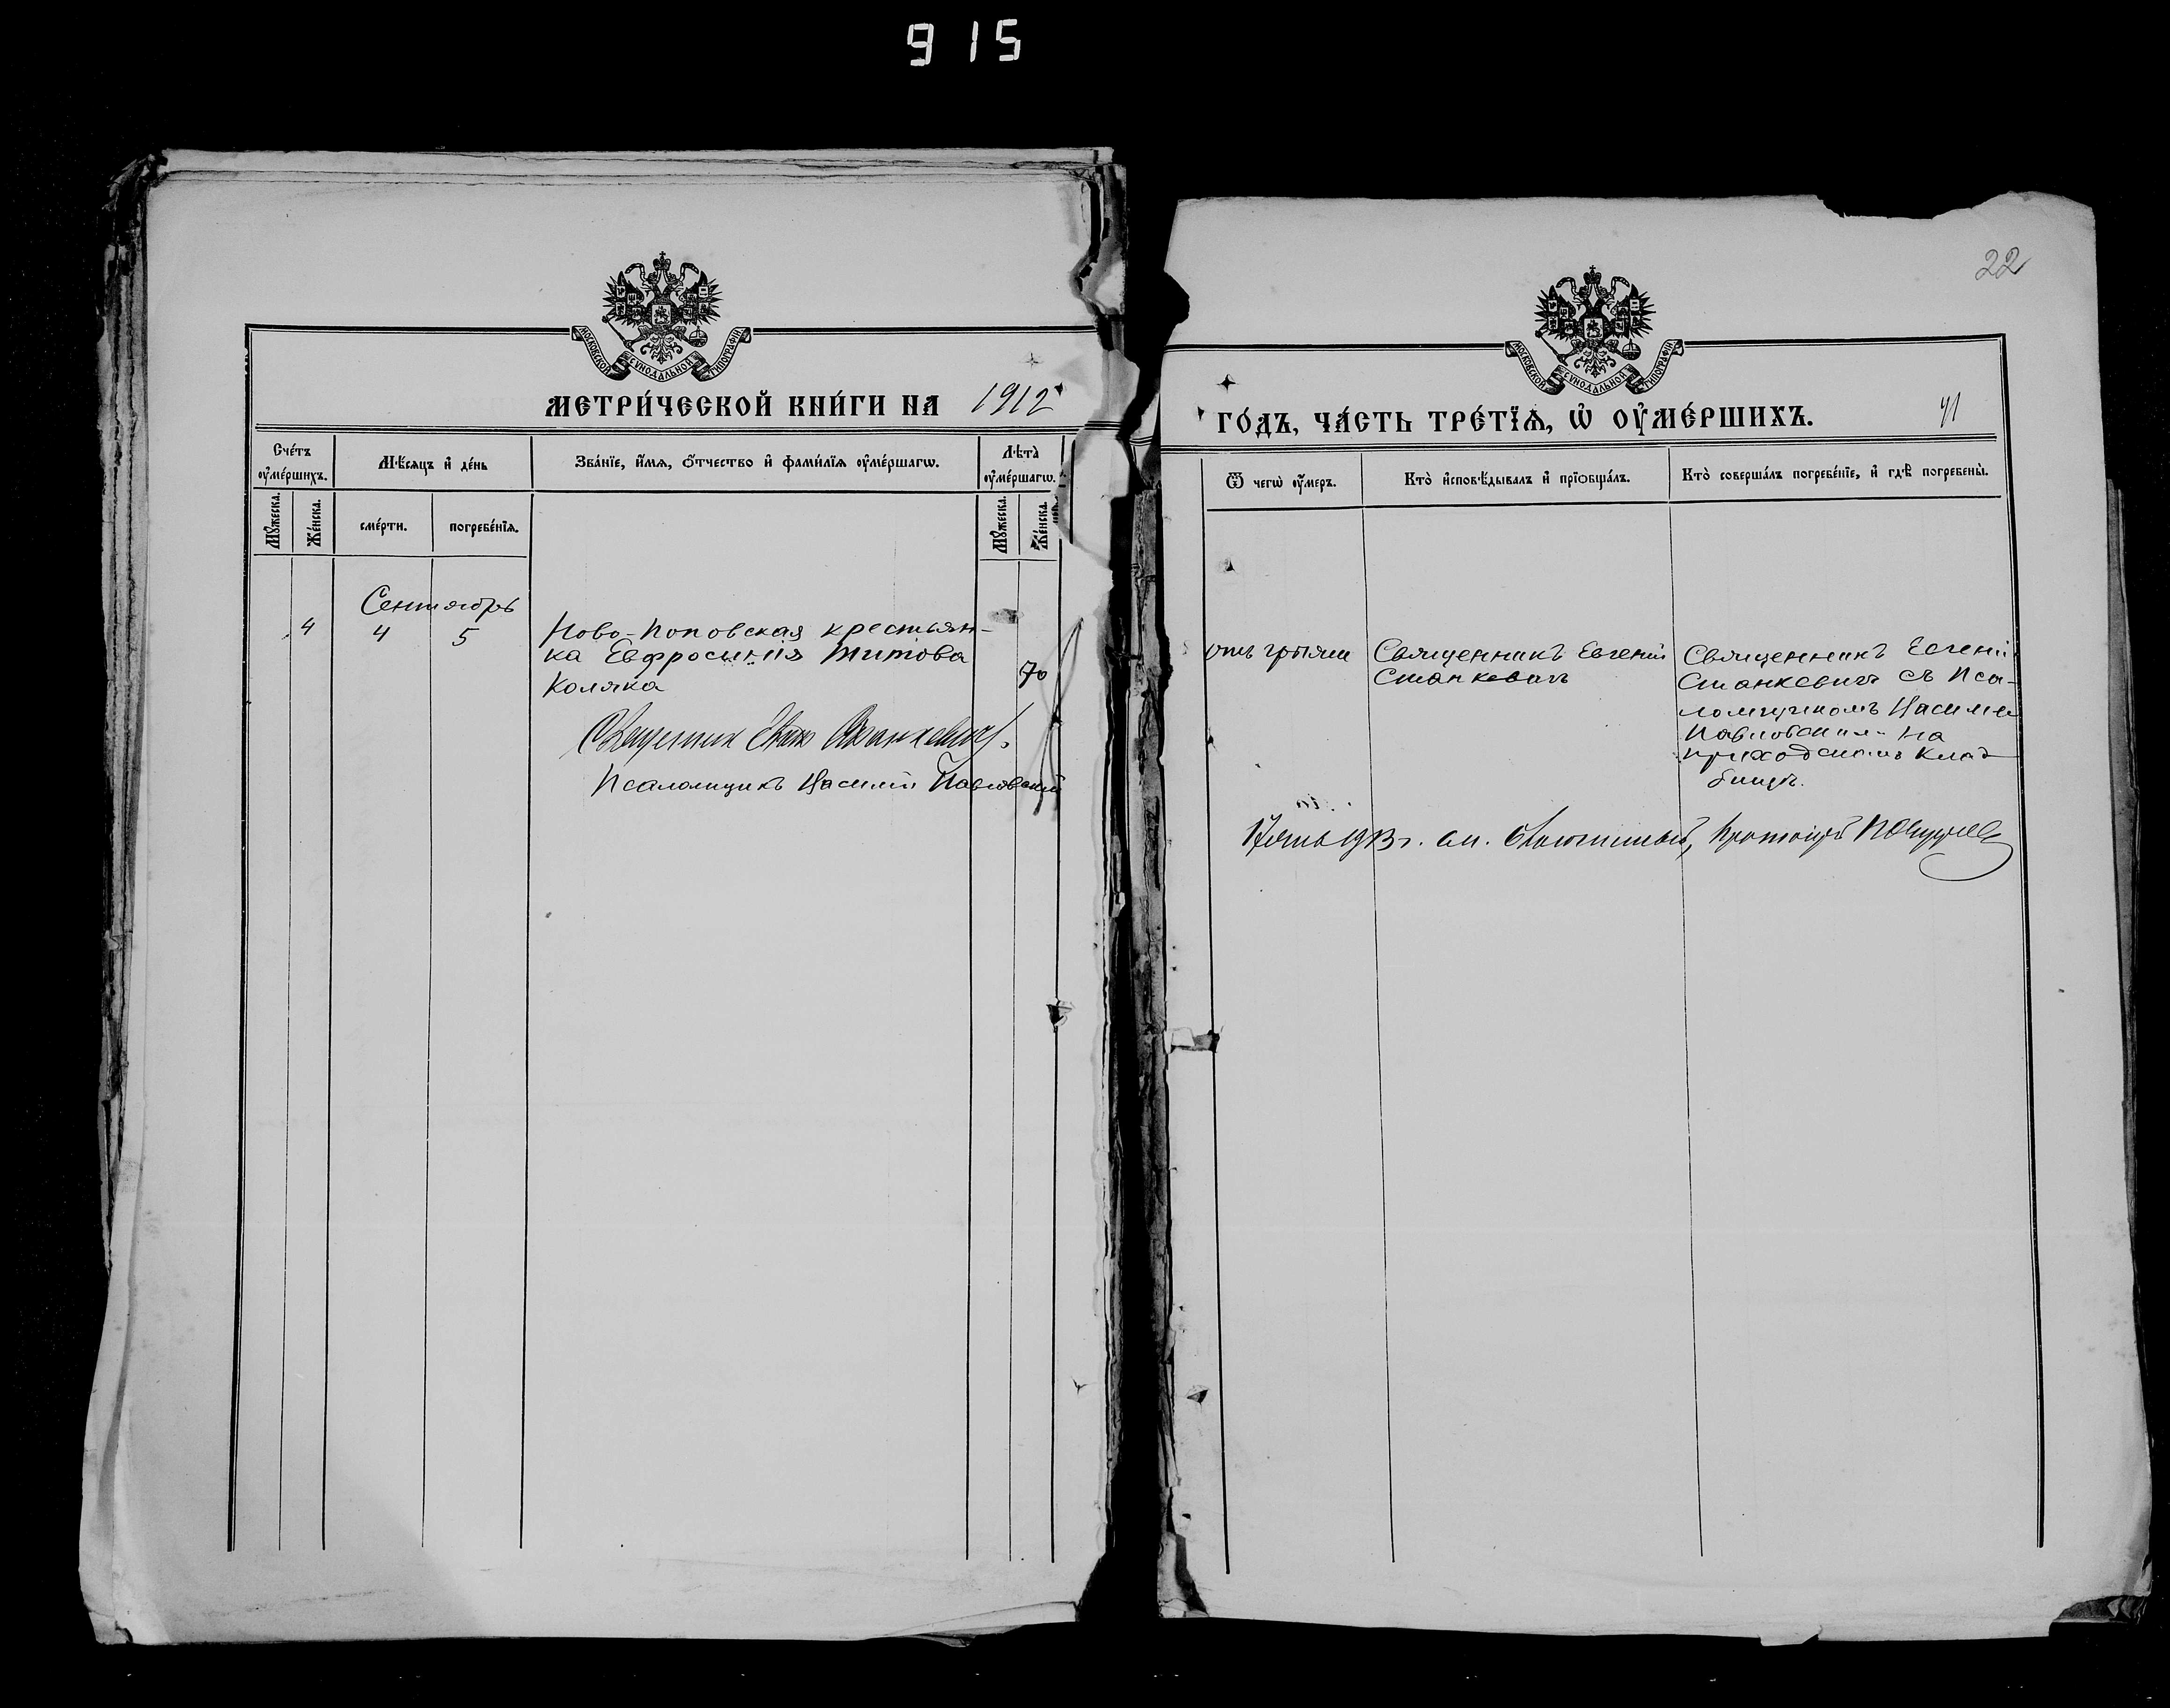 915
22
МОСКОВСКОЙ СѴНОДАЛЬНОЙ ТИПОГРАФІИ
МЕТРИ́ЧЕСКОЙ КНИ́ГИ НА 1912
Сче́тъ ᲂу҆ме́ршихъ.
Мꙋ́жеска.
Же́нска.
Мѣ́сѧцъ и҆ де́нь
сме́рти.
погребе́нїѧ.
Зва́нїе, и҆́мѧ, ѻ҆́тчество и҆ фами́лїѧ ᲂу҆ме́ршагѡ.
Лѣ́та ᲂу҆ме́ршагѡ.
Мꙋ́жеска.
Же́нска.
Сентябрь
4 4 5
Ново-Поповская крестьян-
ка Евфросинія Титова
Коляка
70
Священник Станкевич.
Псаломщикъ Василій Павловский
МОСКОВСКОЙ СѴНОДАЛЬНОЙ ТИПОГРАФІИ
ГО́ДЪ, ЧА́СТЬ ТРЕ́ТЇѦ, Ѡ҆ ОУ҆МЕ́РШИХЪ. 41
Ѿ чегѡ̀ ᲂу҆́меръ.
Кто̀ и҆сповѣ́дывалъ и҆ прїѻбща́лъ.
Кто̀ соверша́лъ погребе́нїе, и҆ гдѣ̀ погребены̀.
отъ грыжи
Священникъ Евгеній
Станкевичъ
Священникъ Евгеній
Станкевичъ съ Пса-
ломщикомъ Василіем
Павловскимъ на
приходскомъ клад-
бищѣ.
1913 г.